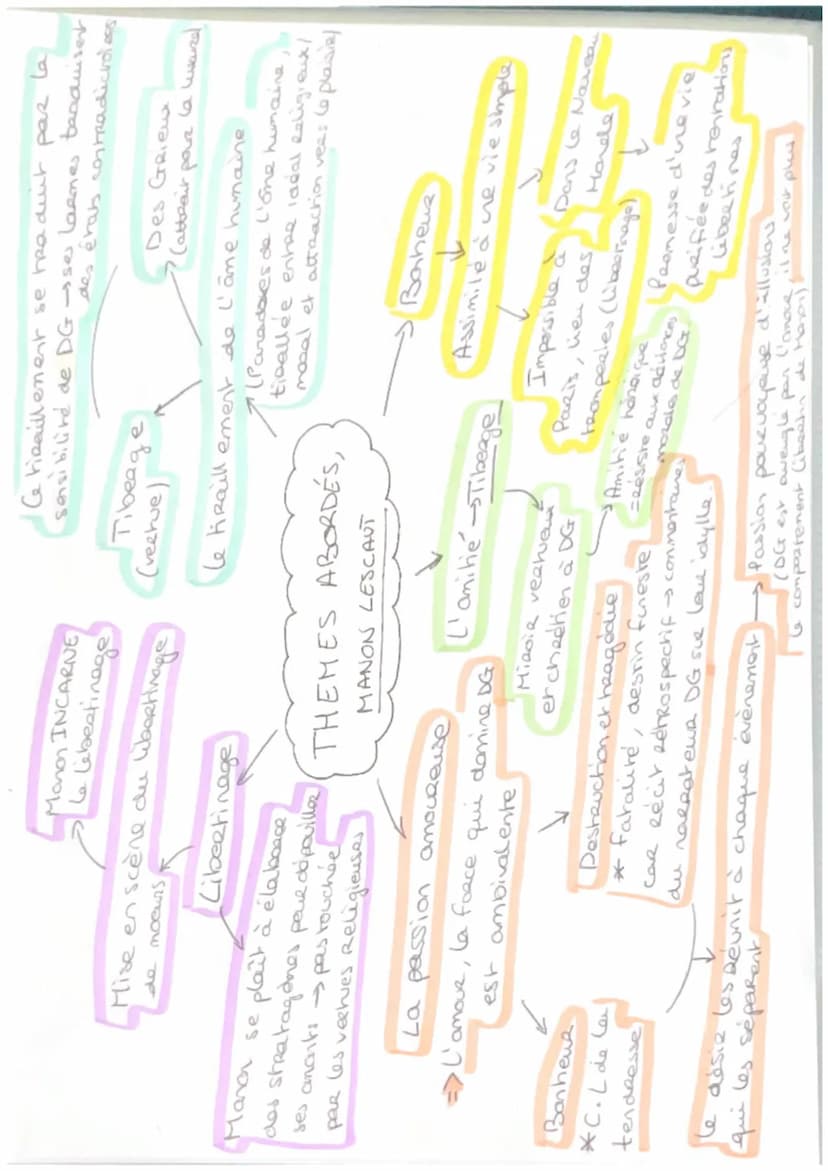 THEMES ABORDÉS,
MANON LESCAUT
Manon INCARNE
le libertinage
Mise en scène du libertinage
de moeurs
Libertinage
Manon se plaît à élaborer
des stratagèmes pour dépouiller
ses amants → pas touchée
par les vertues religieuses
Ce tiraillement se traduit par la
sensibilité de DG → ses larmes traduisent
des états contradictoires
Tiberge
(vertue)
Des Grieux
(attrait par la luxure)
Le tiraillement de l'âme humaine
(Paradoxes de l'âme humaine,
tiraillée entre idéal religieux/
moral et attraction vers le plaisir)
La passion amoureuse
⇒ L'amour, la force qui domine DG
est ambivalente
Bonheur
* C.L de la
tendresse
Destruction et tragédie
* Fatalité, destin funeste
car récit rétrospectif → commentaires
du narrateur DG sur leur idylle
le désir les réunit à chaque évènement
qui les séparent
→ Passion pourvoyeuse d'illusions
(DG est aveuglé par l'amour, il ne voit plus
le comportement libertin de Manon)
L'amitié → Tiberge
Miroir vertueux
et chrétien à DG
Amitié héroïque
= résiste aux déviations
morales de DG
Bonheur
Assimilé à une vie simple
Impossible à
Paris, lieu des
tromperies (libertinage)
Dans le Nouveau
Monde
Promesse d'une vie
purifiée des tentations
libertines